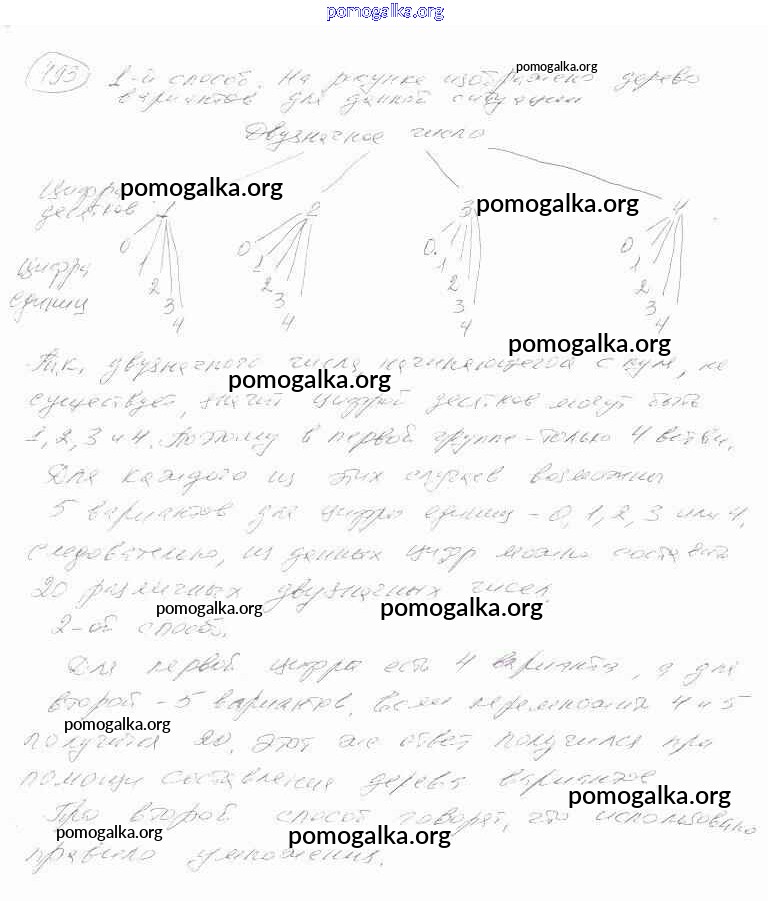 pomogalka.org
493
pomogalka.org
1-й способ. На рисунке изображено дерево
вариантов для данной ситуации
Двузначное число
Цифра
десятков
pomogalka.org
pomogalka.org
1 2 3 4
0 0 0. 0
1 1 1 1
Цифра
2 2 2 2
единиц
3 3 3 3
4 4 4 4
pomogalka.org
Т.к. двузначного числа, начинающегося с нуля, не
pomogalka.org
существует, значит цифрой десятков могут быть
1, 2, 3 и 4. Поэтому в первой группе - только 4 ветви.
Для каждого из этих случаев возможны
5 вариантов для цифры единиц - 0, 1, 2, 3 или 4,
следовательно, из данных цифр можно составить
20 различных двузначных чисел.
pomogalka.org
pomogalka.org
2-ой способ.
Для первой цифры есть 4 варианта, а для
второй - 5 вариантов. Если перемножить 4 и 5
pomogalka.org
получится 20. Этот же ответ получился при
помощи составления дерева вариантов
pomogalka.org
Про второй способ говорят, что использовано
pomogalka.org
pomogalka.org
правило умножения.